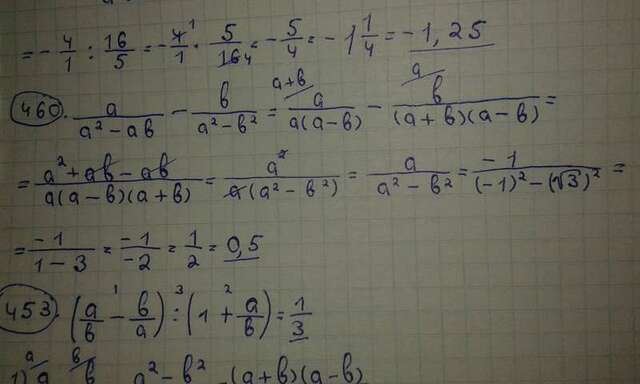 = - 4/1 : 16/5 = - 4/1 ¹ · 5/16 4 = - 5/4 = - 1 1/4 = - 1,25
460. a/(a² - ab) - b/(a² - b²) = a+b a/(a(a-b)) - a b/((a+b)(a-b)) =
= (a² + ab - ab)/(a(a-b)(a+b)) = a²/(a(a² - b²)) = a/(a² - b²) = -1/((-1)² - (√3)²) =
= -1/(1-3) = -1/-2 = 1/2 = 0,5
453. (a/b ¹- b/a) ³: (1 ²+ a/b) = 1/3
1) a b a² - b² (a+b)(a-b)